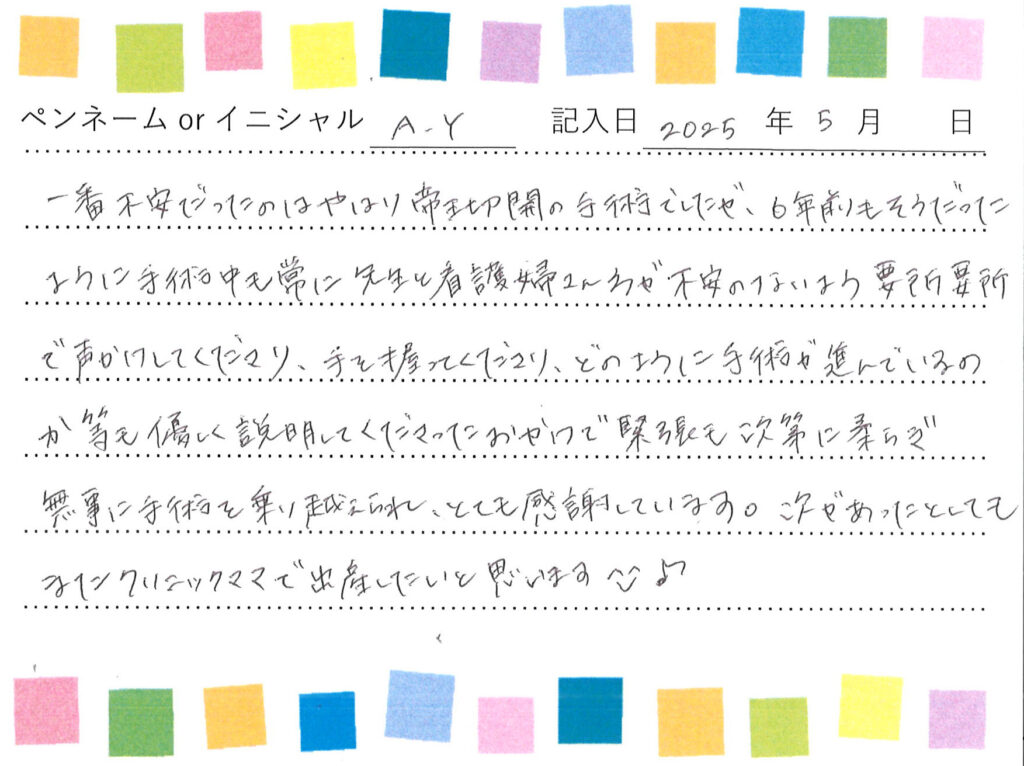 ペンネーム or イニシャル A-Y 記入日 2025 年 5 月 日
一番不安だったのはやはり帝王切開の手術でしたが、6年前もそうだった
ように手術中も常に先生と看護婦さん方が不安のないよう要所要所
で声かけしてくださり、手を握ってくださり、どのように手術が進んでいるの
か等も優しく説明してくださったおかげで緊張も次第に柔らぎ
無事に手術を乗り越えられ、とても感謝しています。次があったとしても
またクリニックママで出産したいと思います